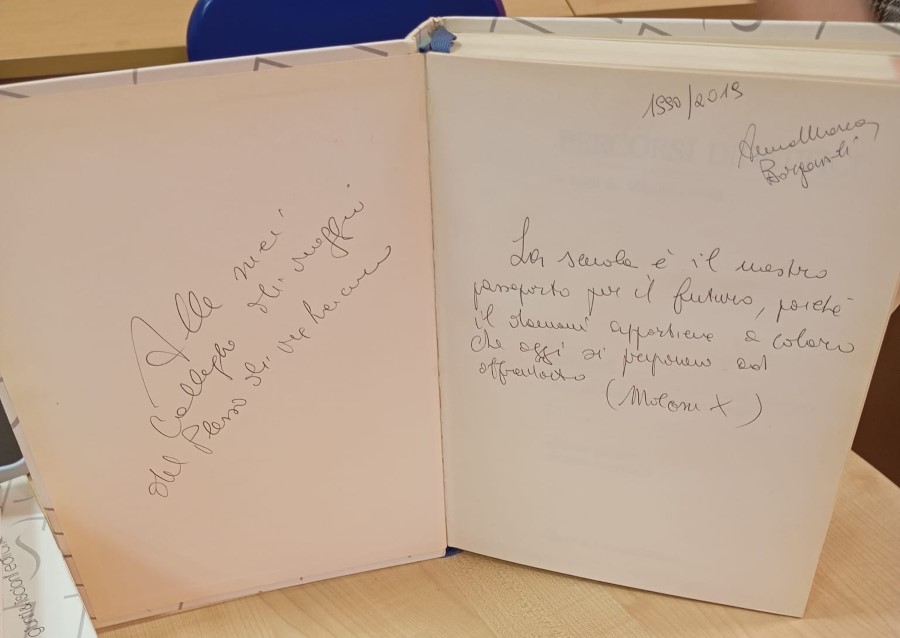 Alle miei
Colleghe di
del Plesso di via
1990/2019
AnnaMaria
La scuola è il nostro
passaporto per il futuro, poiché
il domani appartiene a coloro
che oggi si preparano ad
affrontarlo
(Malcom X)
PERCORSI